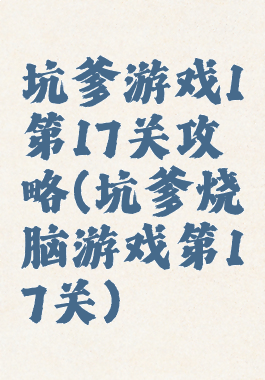 坑爹游戏1
第17关攻
略(坑爹烧
脑游戏第1
7关)